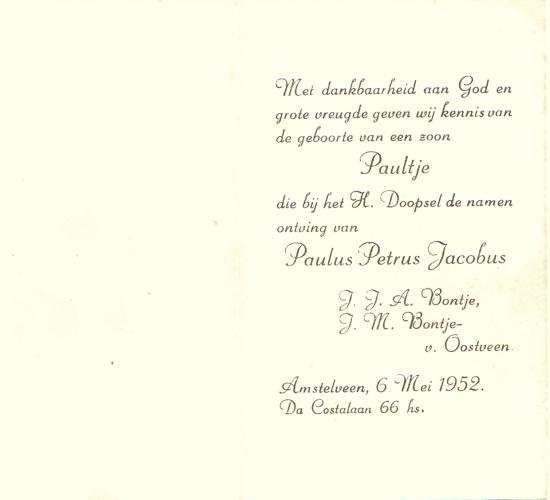 Met dankbaarheid aan God en
grote vreugde geven wij kennis van
de geboorte van een zoon
Paultje
die bij het H. Doopsel de namen
ontving van
Paulus Petrus Jacobus
J. J. A. Bontje,
J. M. Bontje-
v. Oostveen.
Amstelveen, 6 Mei 1952.
Da Costalaan 66 hs.